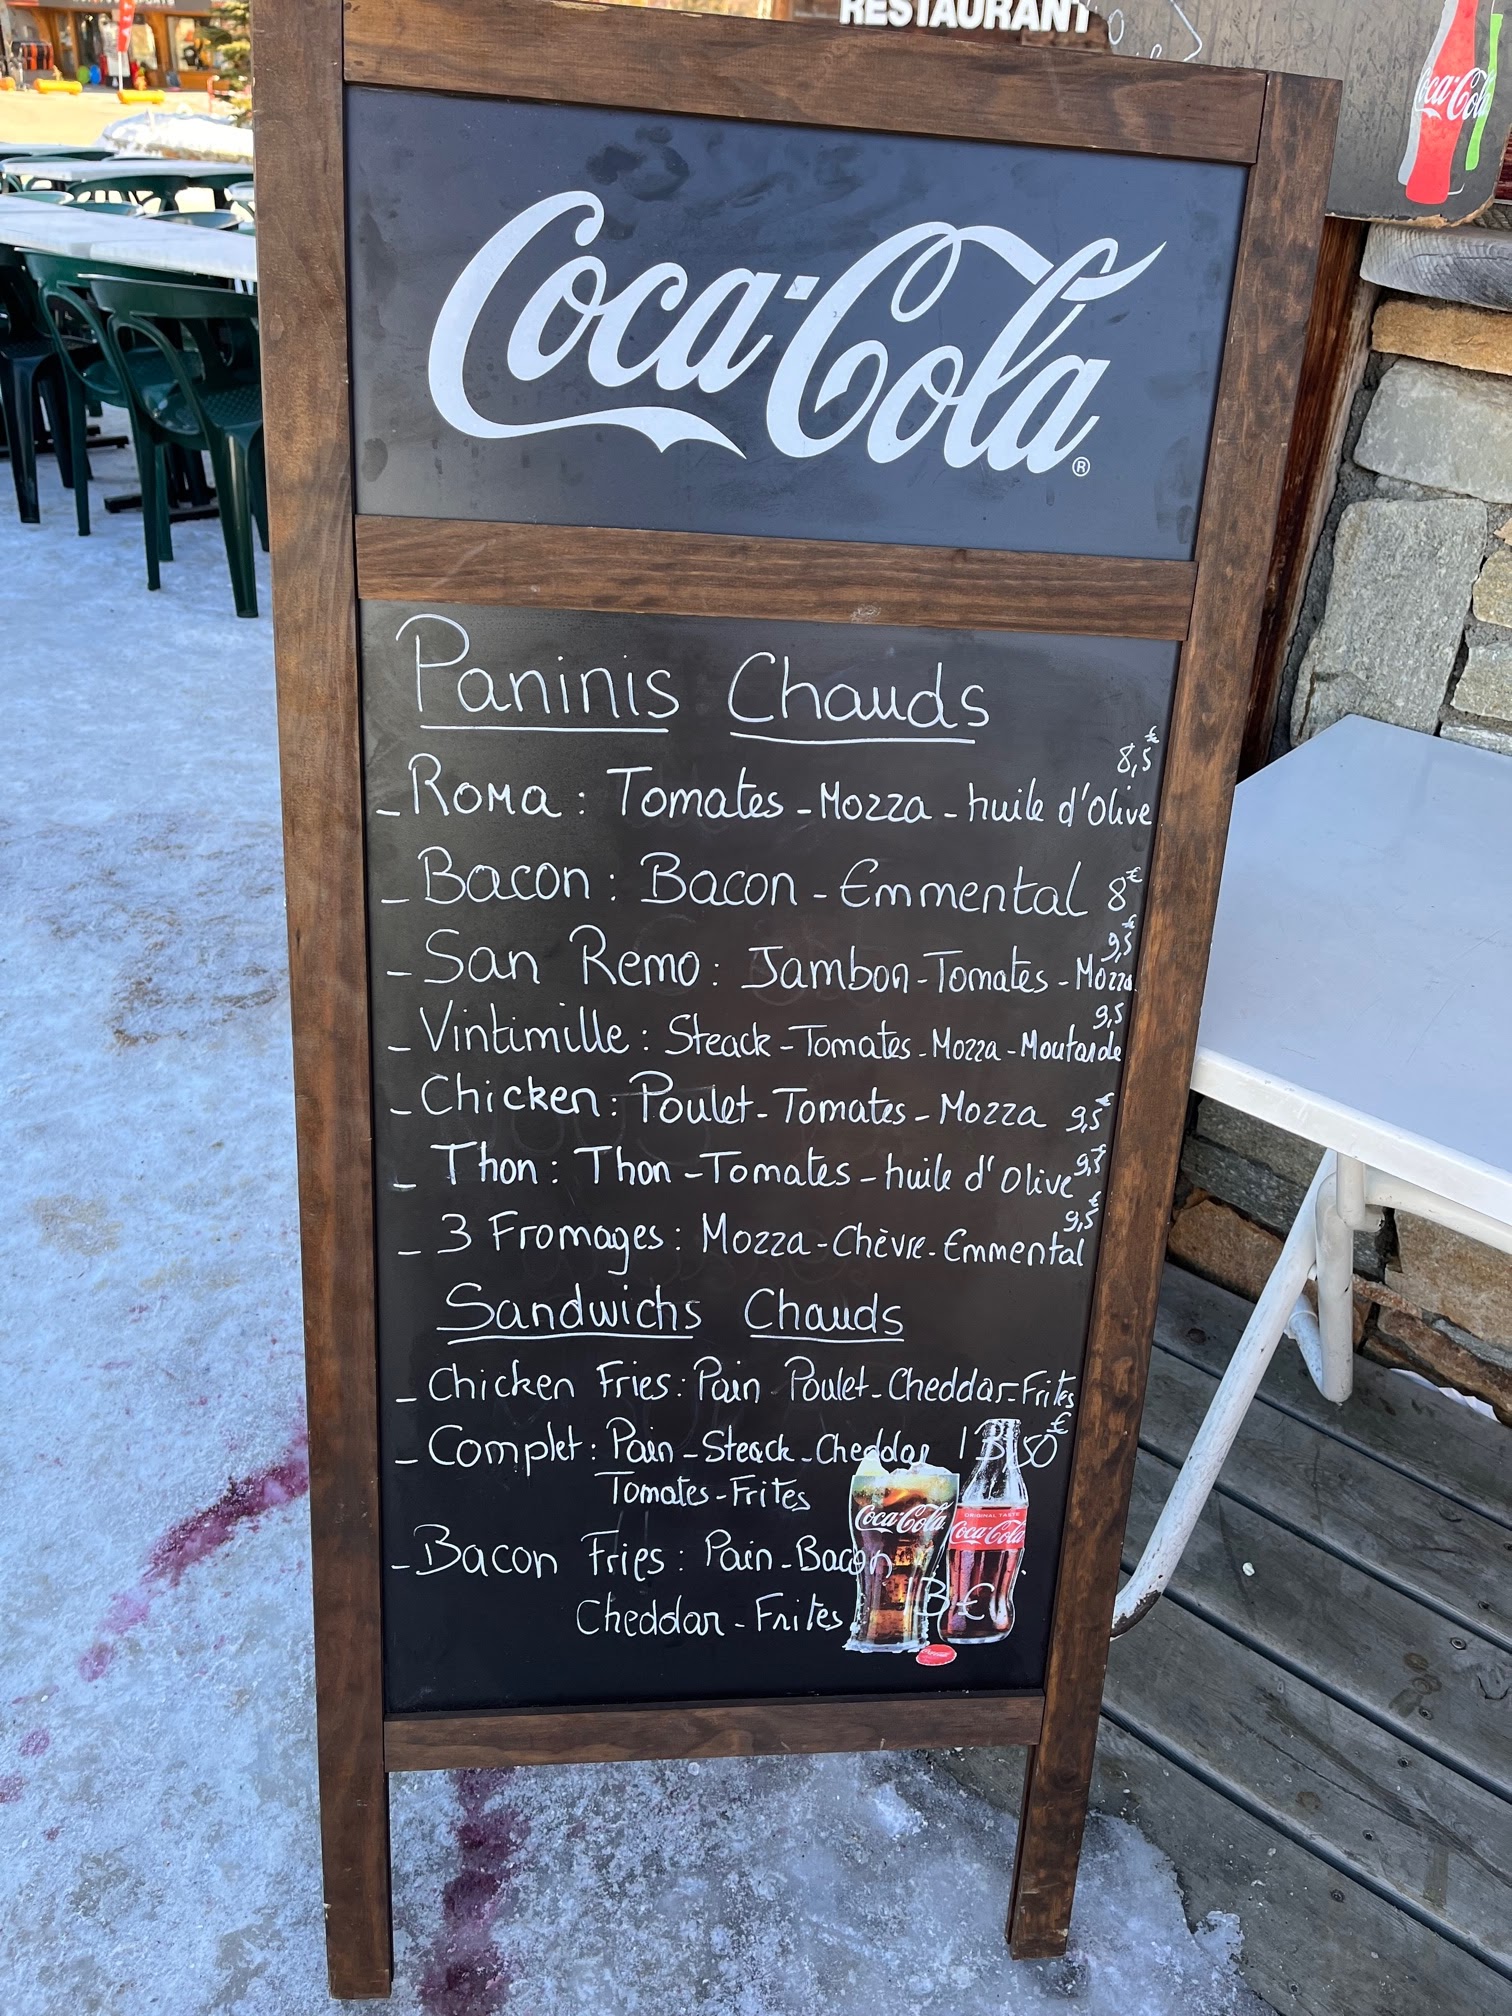 RESTAURANT
Coca-Cola
Coca-Cola®
Paninis Chauds
8,5€
- Roma : Tomates - Mozza - huile d'Olive
- Bacon : Bacon - Emmental 8€
9,5€
- San Remo : Jambon - Tomates - Mozza
9,5
- Vintimille : Steack - Tomates - Mozza - Moutarde
- Chicken : Poulet - Tomates - Mozza 9,5€
- Thon : Thon - Tomates - huile d'Olive
9,5€
- 3 Fromages : Mozza - Chèvre - Emmental
Sandwichs Chauds
- Chicken Fries : Pain Poulet - Cheddar - Frites
- Complet : Pain - Steack - Cheddar 13,50€
Tomates - Frites
Coca-Cola
ORIGINAL TASTE
Coca-Cola
- Bacon Fries : Pain - Bacon
Cheddar - Frites 13€